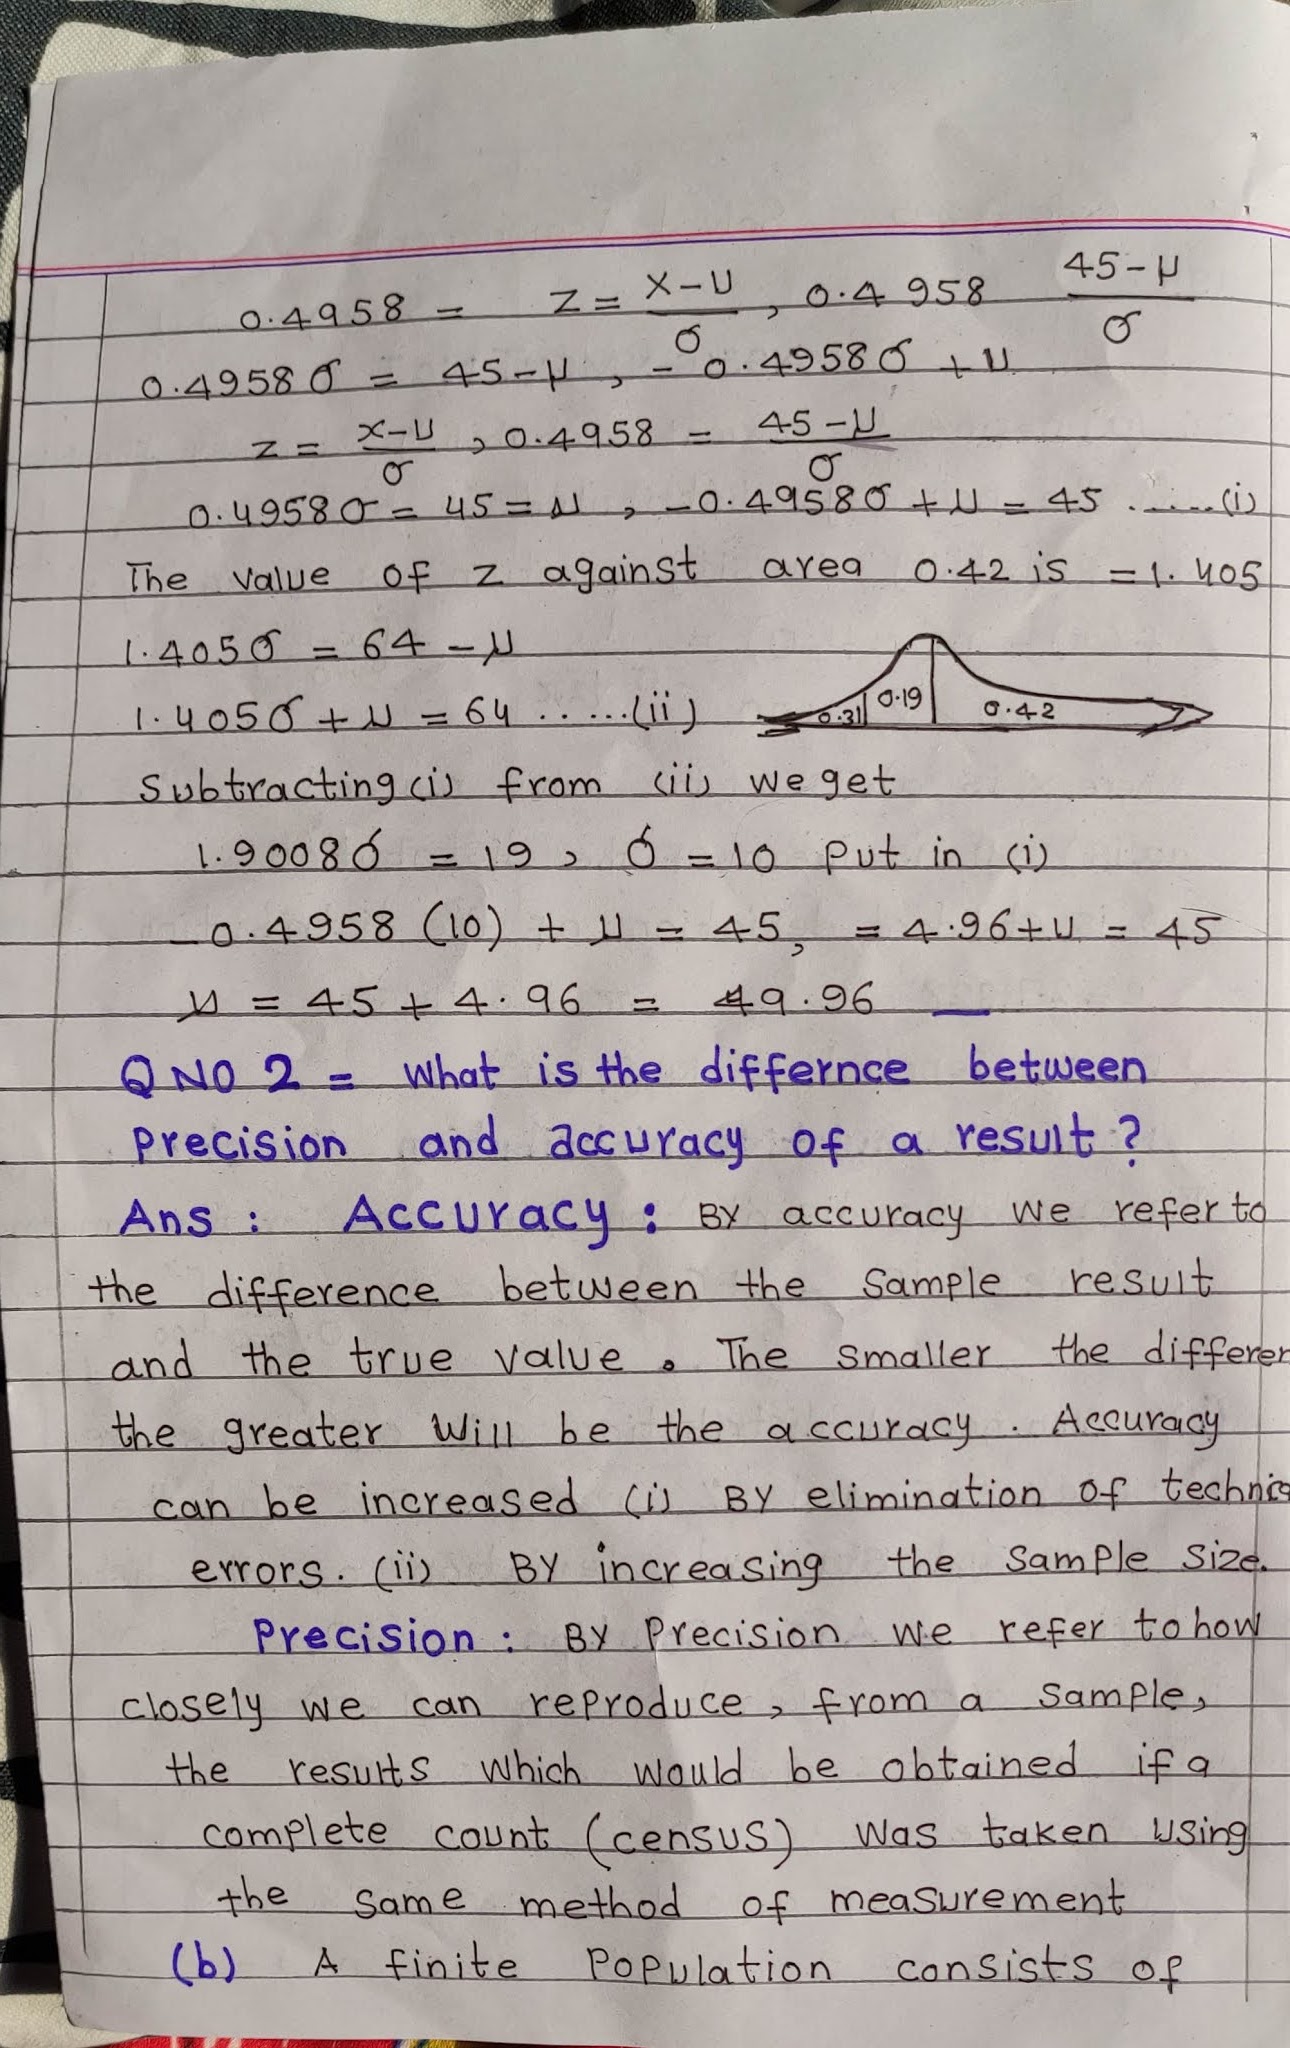 0.4958 = z = x-μ/σ, 0.4958 45-μ/σ
0.4958σ = 45-μ, -0.4958σ + μ
z = x-μ/σ, 0.4958 = 45-μ/σ
0.4958σ = 45 = μ, -0.4958σ + μ = 45 ......(i)
The value of z against area 0.42 is = 1.405
1.405σ = 64 - μ
1.405σ + μ = 64 ......(ii)
0.31 0.19 0.42
Subtracting (i) from (ii) we get
1.9008σ = 19, σ = 10 put in (i)
-0.4958 (10) + μ = 45, = 4.96 + μ = 45
μ = 45 + 4.96 = 49.96
Q NO 2 = What is the differnce between
Precision and accuracy of a result?
Ans : Accuracy : By accuracy we refer to
the difference between the sample result
and the true value. The smaller the differen
the greater will be the accuracy. Accuracy
can be increased (i) By elimination of technica
errors. (ii) By increasing the sample size.
Precision : By Precision we refer to how
closely we can reproduce, from a sample,
the results which would be obtained if a
complete count (census) was taken using
the same method of measurement
(b) A finite Population consists of